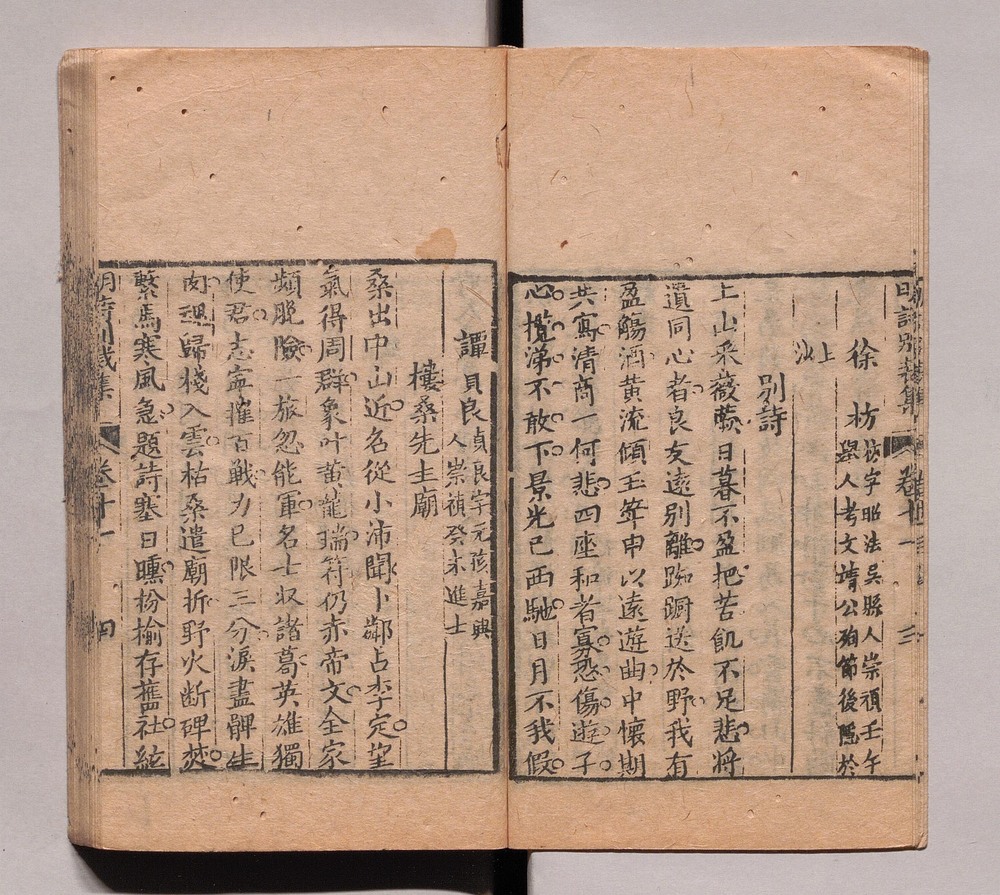 明詩別裁集 卷十一 三
徐枋
枋字昭法吳縣人崇禎壬午
舉人考文靖公殉節後隱於
上
沙
別詩
上山采薇蕨日暮不盈把苦飢不足悲將
遺同心者良友遠別離踟蹰送於野我有
盈觴酒黃流傾玉斝申以遠遊曲中懷期
共寫清商一何悲四座和者寡恐傷遊子
心攬涕不敢下景光已西馳日月不我假
譚貞良
貞良字元孩嘉興
人崇禎癸未進士
樓桑先主廟
桑出中山近名從小沛聞卜鄰占李定望
氣得周群象叶黃龍瑞符仍赤帝文全家
頻脫險一旅忽能軍名士收諸葛英雄獨
使君志寧摧百戰力已限三分淚盡髀生
肉魂歸棧入雲枯桑遺廟折野火断碑焚
繫馬寒風急題詩塞日曛枌榆存舊社統
明詩別裁集 卷十一 四